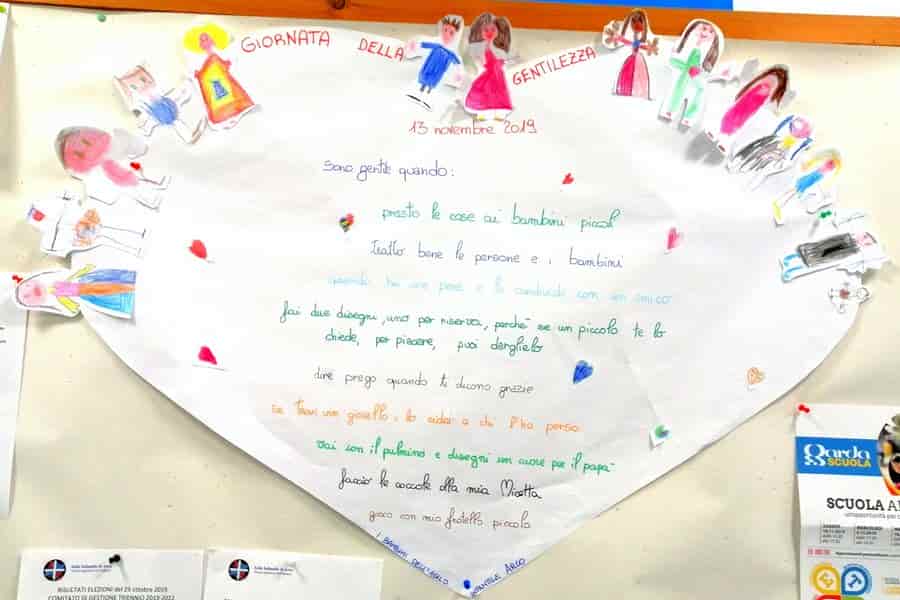 GIORNATA DELLA GENTILEZZA
13 novembre 2019
Sono gentile quando:
presto le cose ai bambini piccoli
tratto bene le persone e i bambini
quando hai una pera e la condividi con un amico
fai due disegni, uno per riserva, perché se un piccolo te lo
chiede, per piacere, puoi darglielo
dire prego quando ti dicono grazie
se trovi un gioiello, lo ridai a chi l'ha perso
vai con il pulmino e disegni un cuore per il papà
faccio le coccole alla mia Micetta
gioco con mio fratello piccolo
I BAMBINI DELL'ASILO
ARCO
Garda
SCUOLA
SCUOLA
RISULTATI ELEZIONI del 29 ottobre 2019
COMITATO DI GESTIONE TRIENNIO 2019-2022